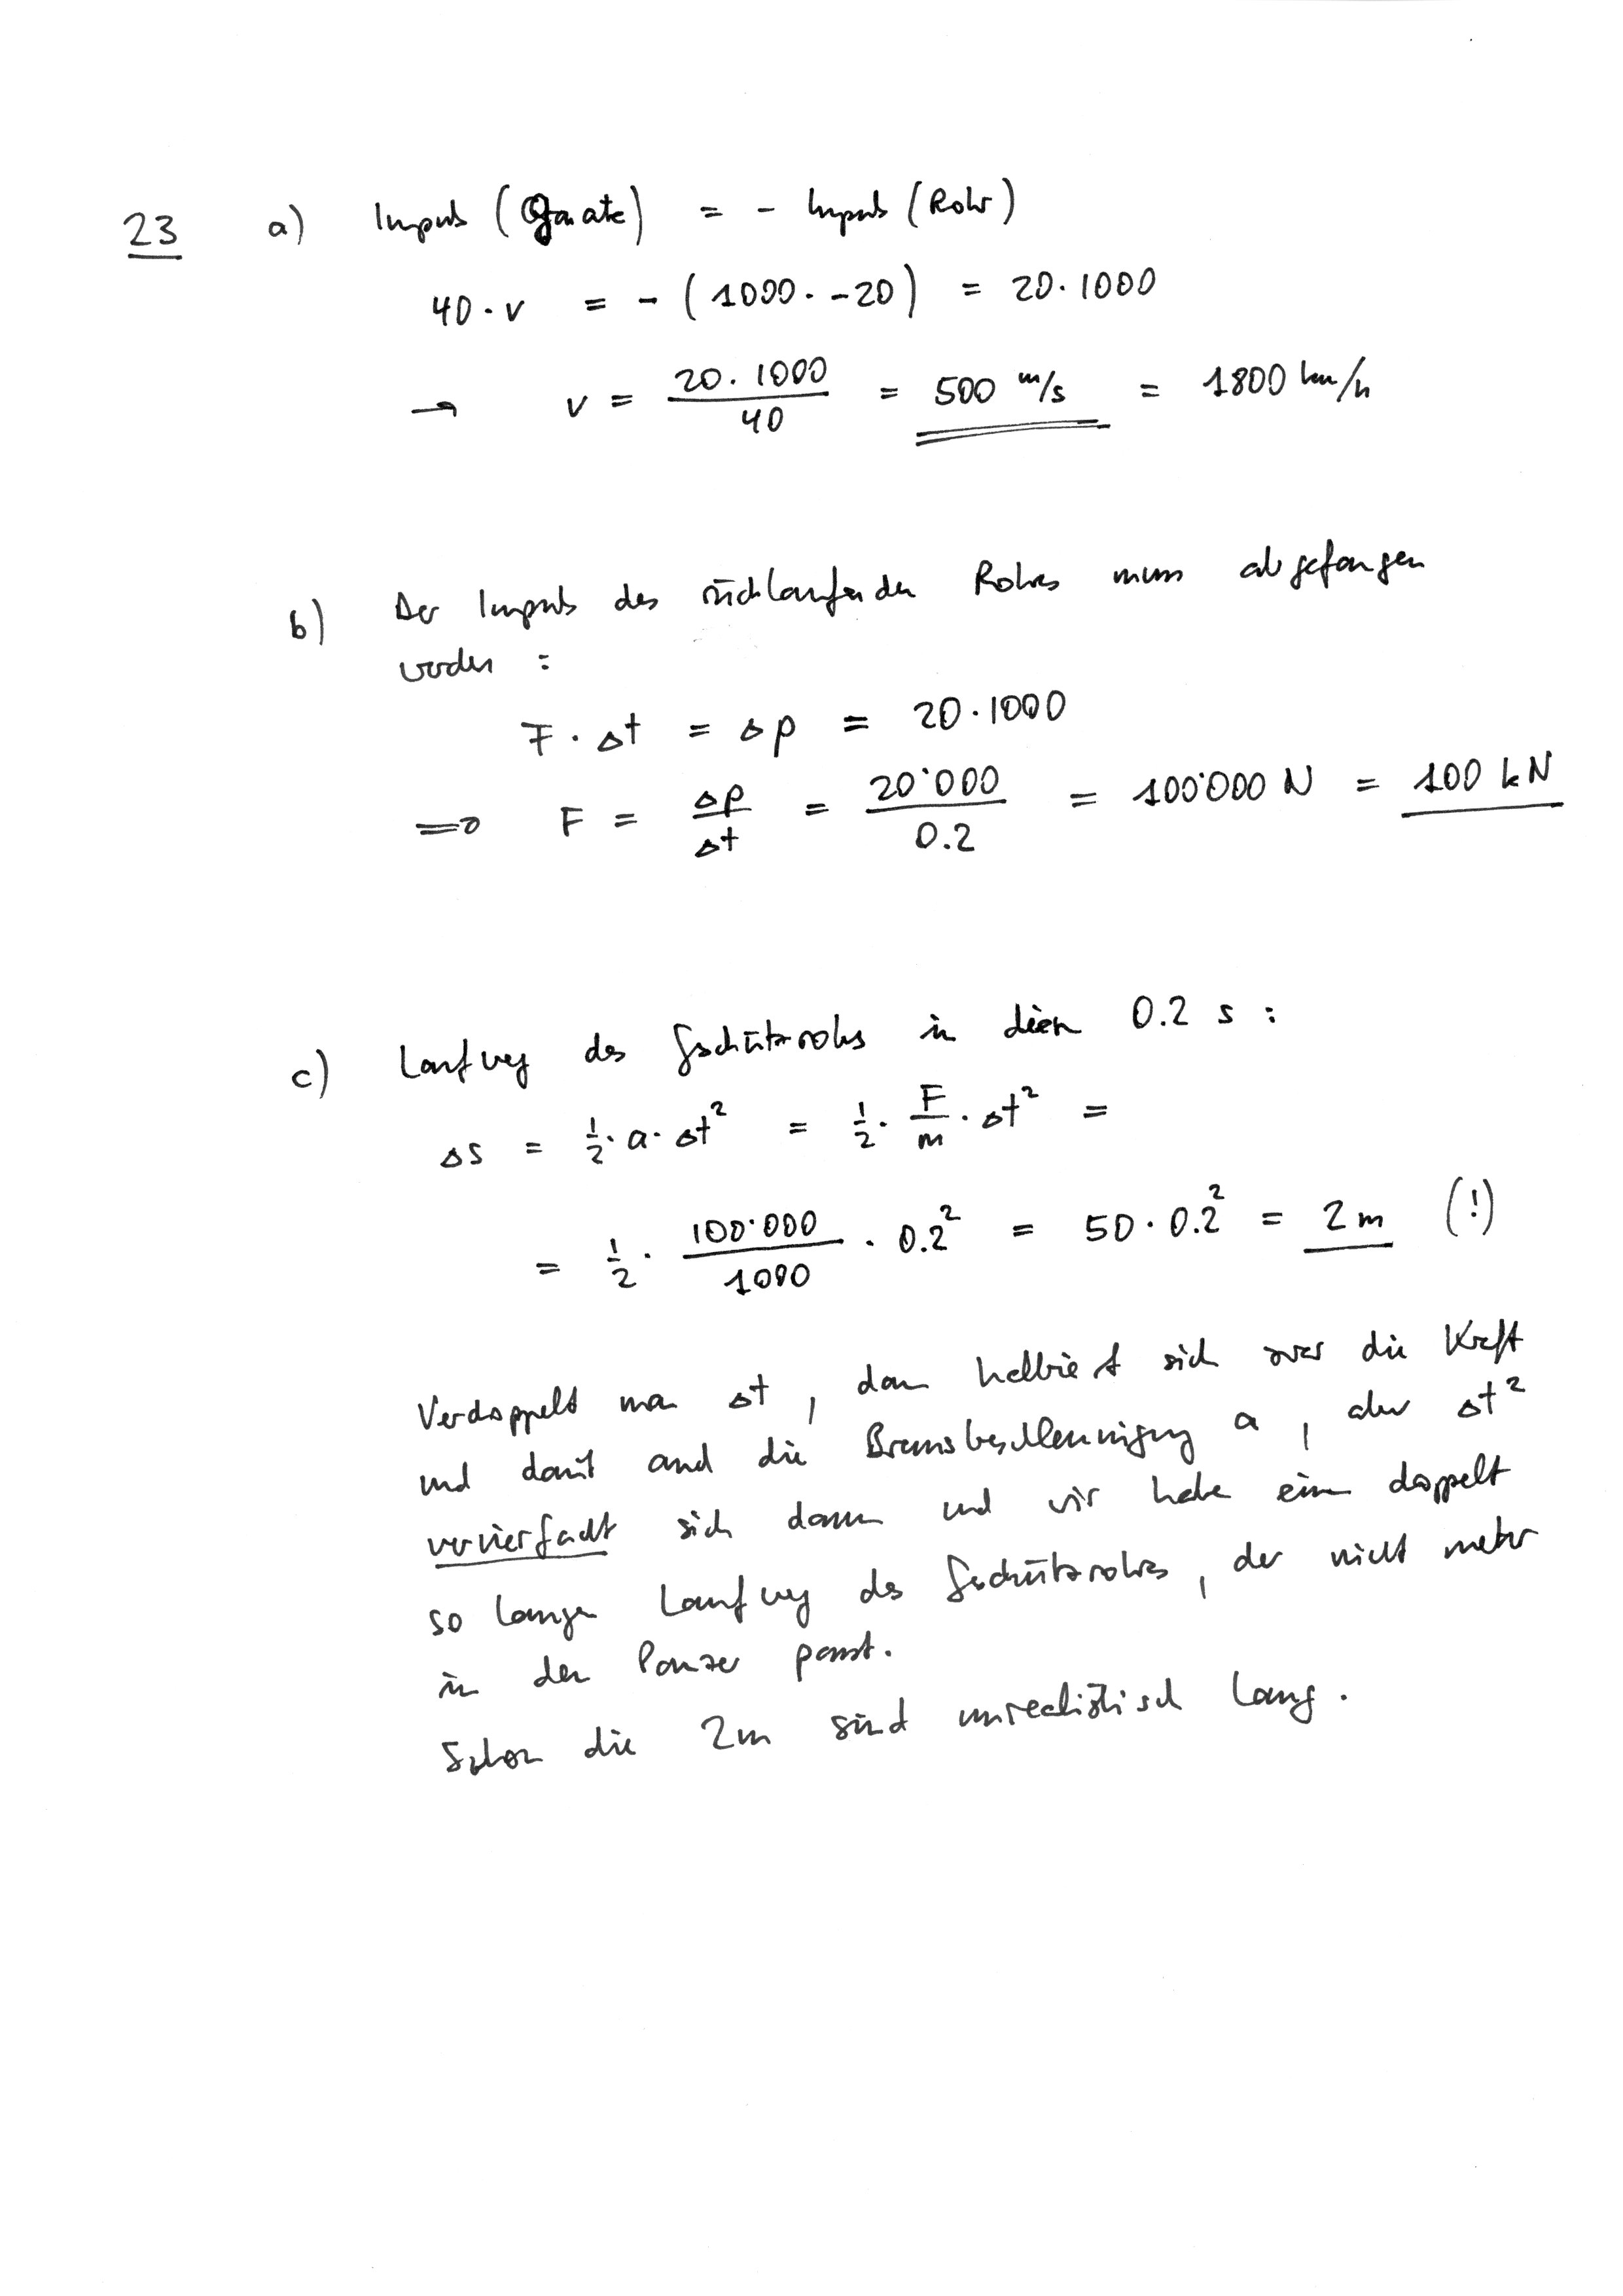 23 a) Impuls (Granate) = - Impuls (Rohr)
40 · v = - (1000 · -20) = 20 · 1000
→ v = 20 · 1000 / 40 = 500 m/s = 1800 km/h
b) Der Impuls des rücklaufenden Rohres muss abgefangen
werden :
F · Δt = Δp = 20 · 1000
⇒ F = Δp / Δt = 20'000 / 0.2 = 100'000 N = 100 kN
c) Laufweg des Geschützrohrs in diesen 0.2 s :
Δs = 1/2 · a · Δt² = 1/2 · F/m · Δt² =
= 1/2 · 100'000 / 1000 · 0.2² = 50 · 0.2² = 2 m (!)
Verdoppelt man Δt , dann halbiert sich zwar die Kraft
und damit auch die Bremsbeschleunigung a , aber Δt²
vervierfacht sich dann und wir haben einen doppelt
so langen Laufweg des Geschützrohres , der nicht mehr
in den Panzer passt.
Schon die 2m sind unrealistisch lang .